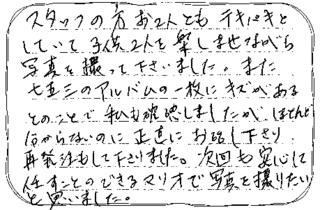 スタッフの方お2人とも テキパキと
していて子供2人を楽しませながら
写真を撮って下さいました。また
七五三のアルバムの一枚にキズがある
とのことで私も確認しましたが、ほとんど
分からないのに正直にお話し下さり
再発注もして下りました。次回も安心して
任すことのできるマリオで写真を撮りたい
と思いました。